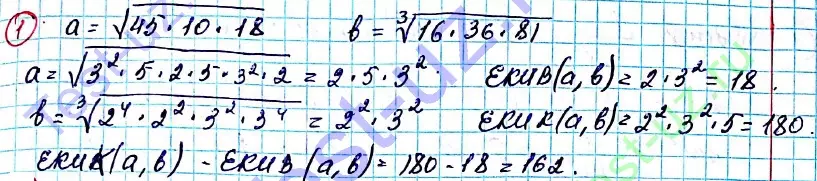 ① a = √45·10·18 b = ∛16·36·81
a = √3²·5·2·5·3²·2 = 2·5·3². ЕКИВ(a, b) = 2·3² = 18.
b = ∛2⁴·2²·3²·3⁴ = 2²·3² ЕКИК(a, b) = 2²·3²·5 = 180.
ЕКИК(a, b) - ЕКИВ(a, b) = 180 - 18 = 162.